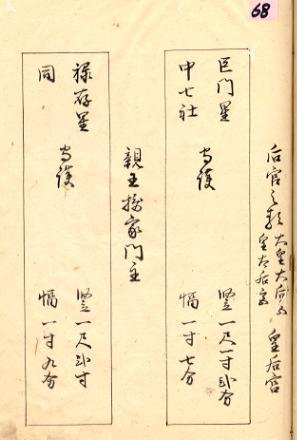 68
后宮之類 太皇太后宮 皇后宮
皇太后宮
巨門星 守護 竪一尺一寸弐分
中七社 幅一寸七分
親王摂家門主
禄存星 守護 竪一尺弐寸
同 幅一寸九分